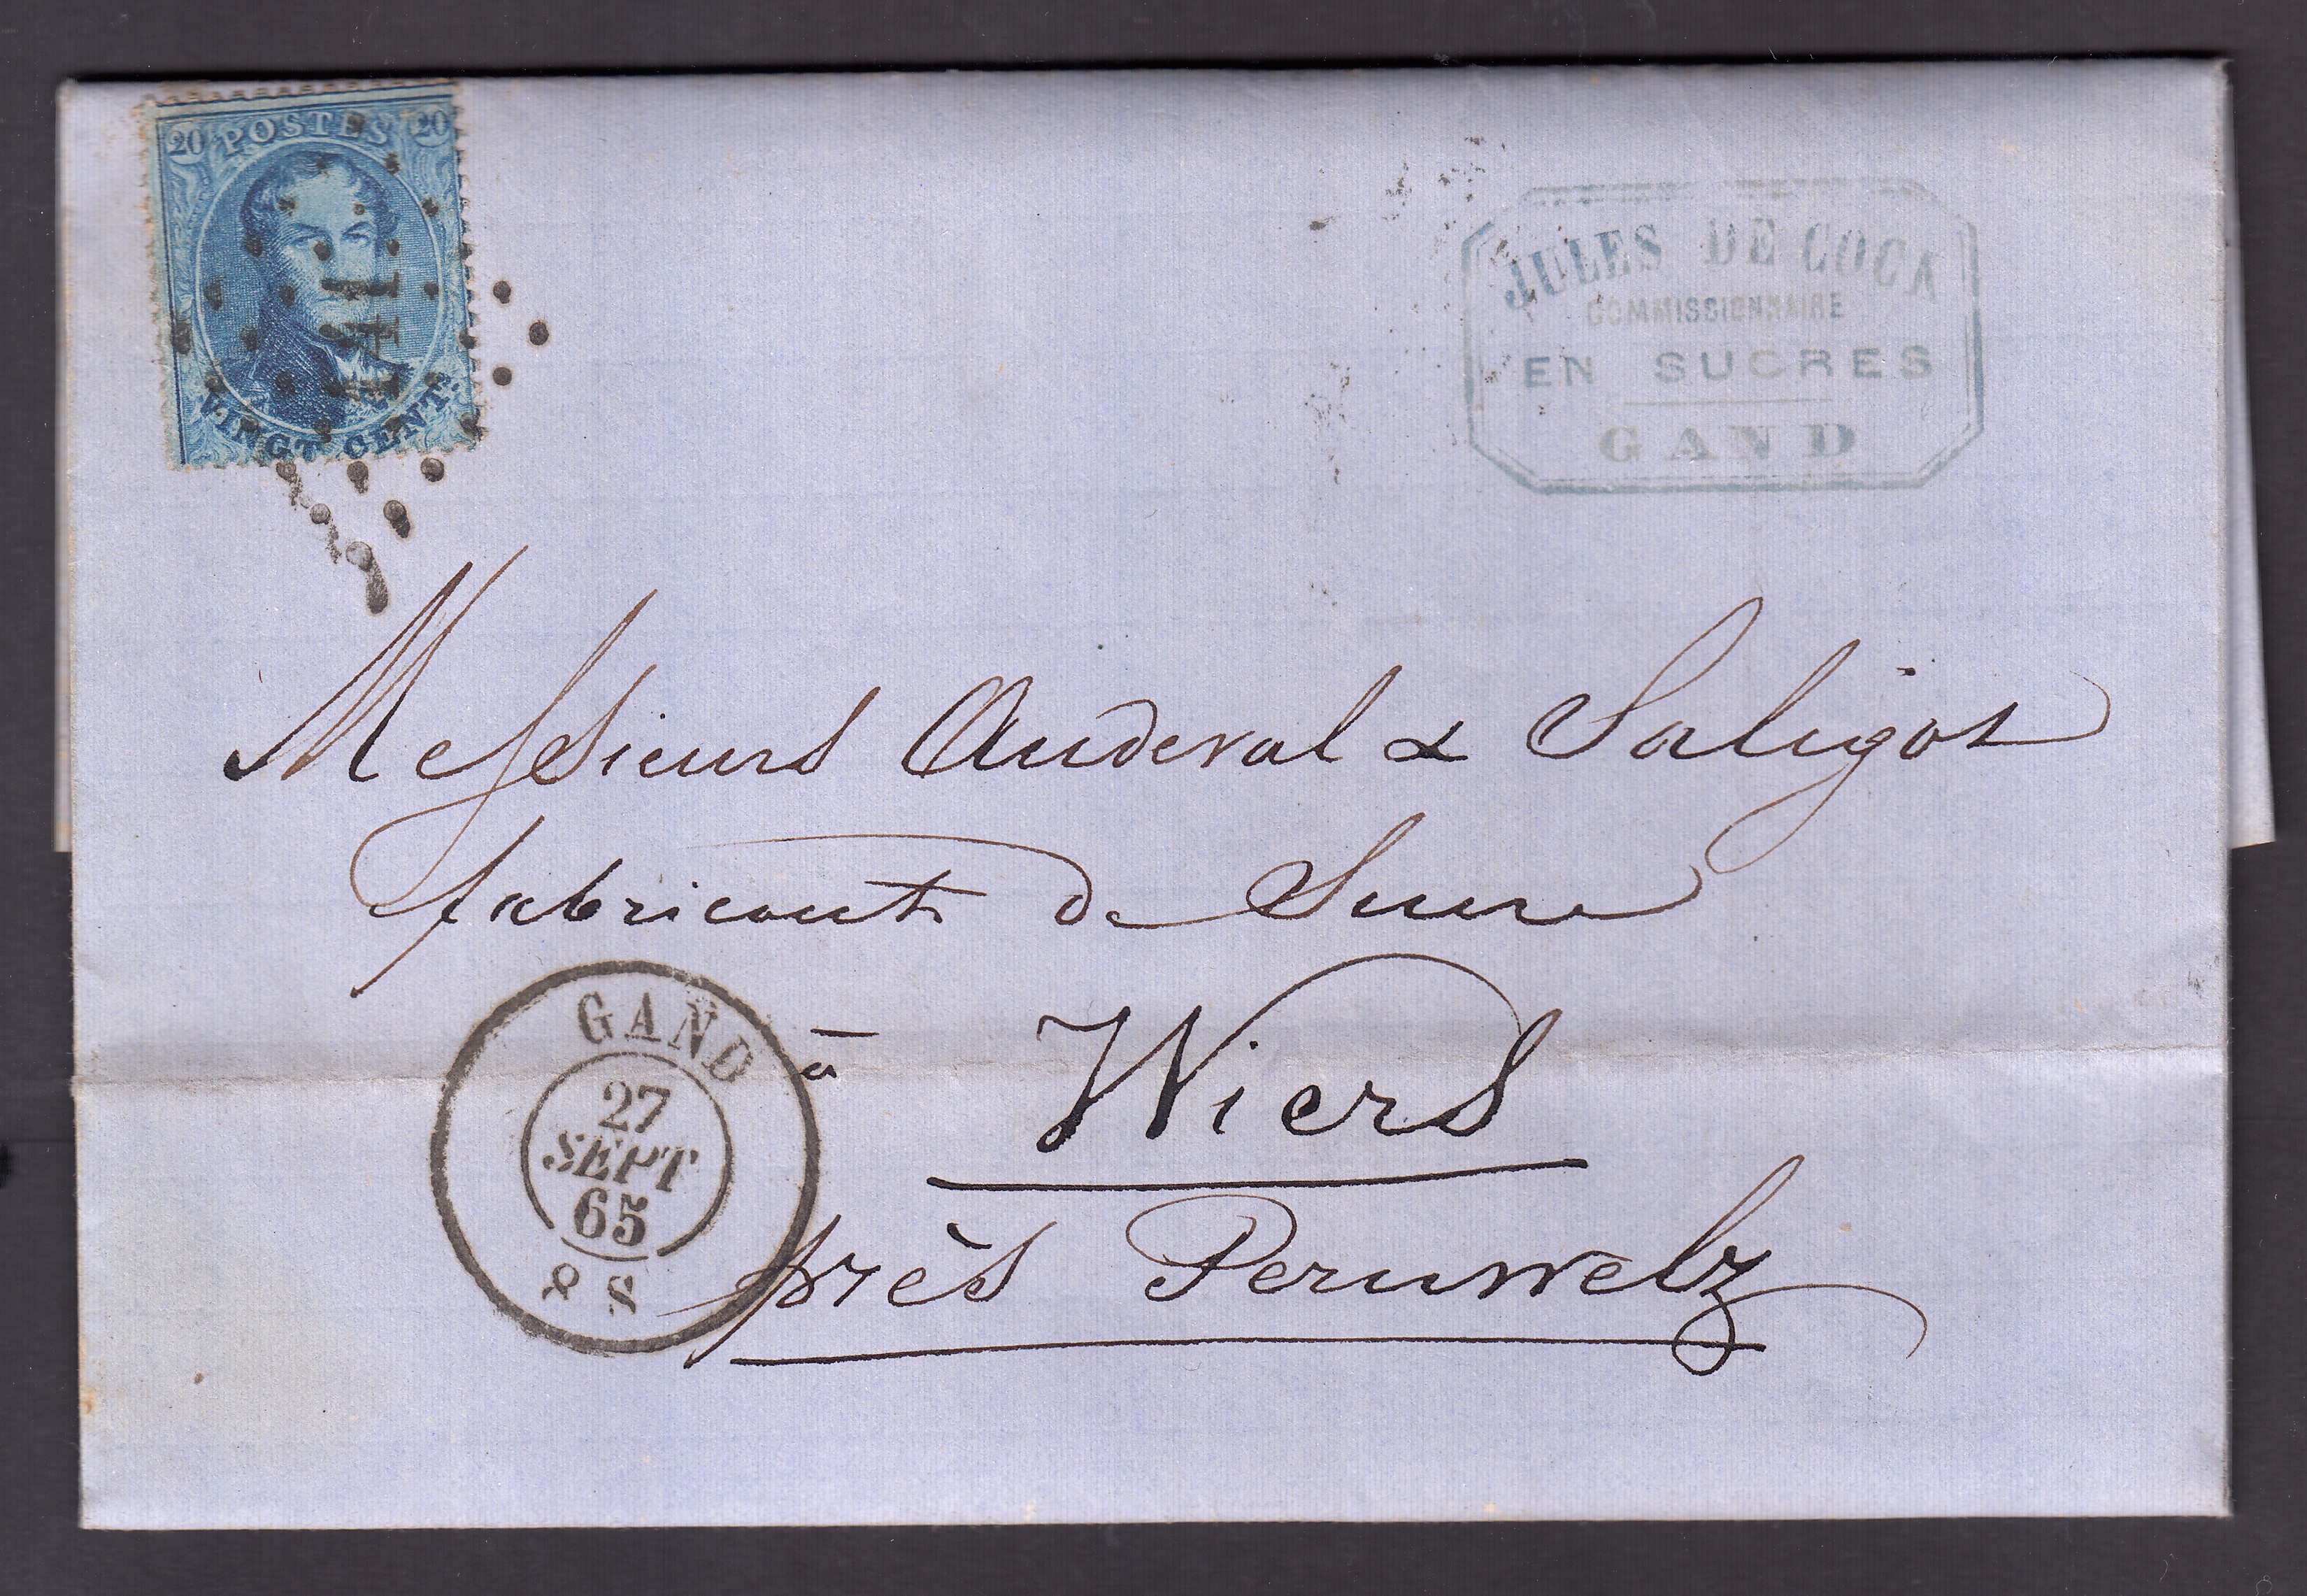 20 POSTES 20
VINGT CENT.
141
JULES DE COCK
COMMISSIONNAIRE
EN SUCRES
GAND
Messieurs Auderval & Saligot
fabricants de Sucre
à Wiers
près Peruwelz
GAND
27
SEPT
65
8 S